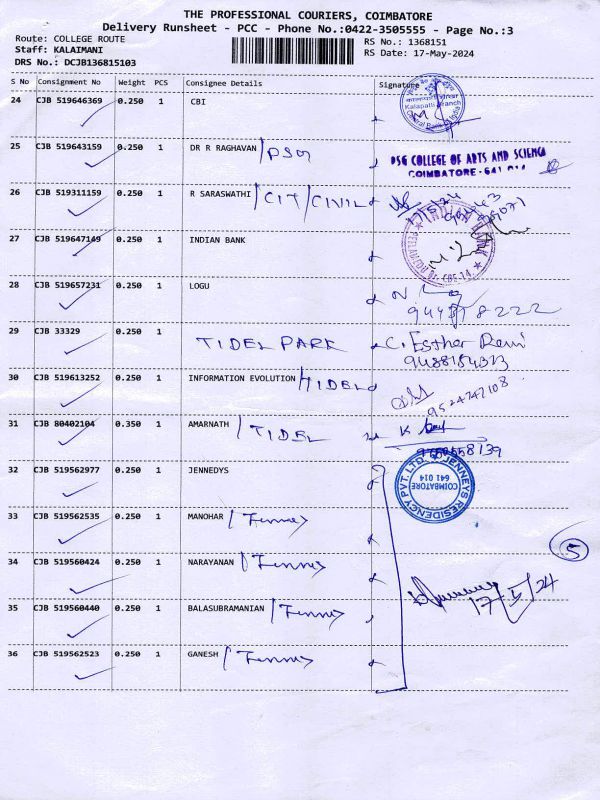 THE PROFESSIONAL COURIERS, COIMBATORE
Delivery Runsheet - PCC - Phone No.:0422-3505555 - Page No.:3
Route: COLLEGE ROUTE
RS No.: 1368151
Staff: KALAIMANI
RS Date: 17-May-2024
DRS No.: DCJB136815103
S No Consignment No Weight PCS Consignee Details Signature
24 CJB 519646369 0.250 1 CBI
25 CJB 519643159 0.250 1 DR R RAGHAVAN /PSG
PSG COLLEGE OF ARTS AND SCIENCE
COIMBATORE - 641 014
26 CJB 519311159 0.250 1 R SARASWATHI /CIT/CIVIL
27 CJB 519647149 0.250 1 INDIAN BANK
INDIAN BANK
CBE-14
28 CJB 519657231 0.250 1 LOGU
29 CJB 33329 0.250 1 TIDEL PARK C. Esther Rani
30 CJB 519613252 0.250 1 INFORMATION EVOLUTION /TIDEL
9524747108
31 CJB 80402104 0.350 1 AMARNATH / TIDEL K
32 CJB 519562977 0.250 1 JENNEDYS
JENNEYS RESIDENCY PVT. LTD.
COIMBATORE
641 014
33 CJB 519562535 0.250 1 MANOHAR /Jenneys
34 CJB 519560424 0.250 1 NARAYANAN /Jenneys
5
35 CJB 519560440 0.250 1 BALASUBRAMANIAN /Jenneys
17/5/24
36 CJB 519562523 0.250 1 GANESH /Jenneys